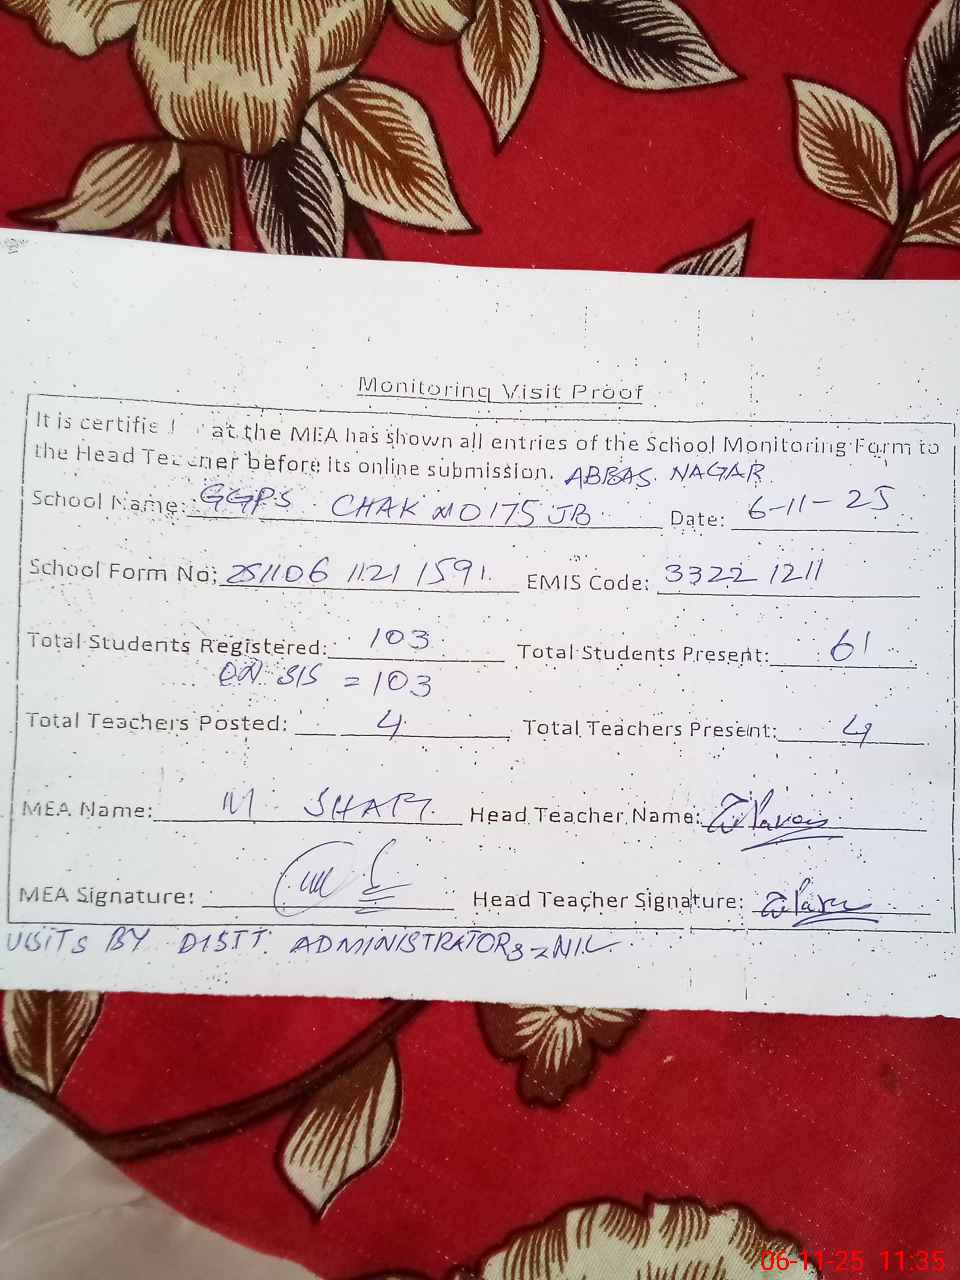 Monitoring Visit Proof
It is certifie at the MEA has shown all entries of the School Monitoring Form to
the Head Teacher before its online submission. ABBAS NAGAR
School Name: GGPS CHAK NO 175 JB Date: 6-11-25
School Form No: 251106 1121 1591 EMIS Code: 3322 1211
Total Students Registered: 103 Total Students Present: 61
ON SIS = 103
Total Teachers Posted: 4 Total Teachers Present: 4
MEA Name: M SHAFI Head Teacher Name:
MEA Signature: Head Teacher Signature:
VISITS BY DISTT. ADMINISTRATORS = NIL
06-11-25 11:35